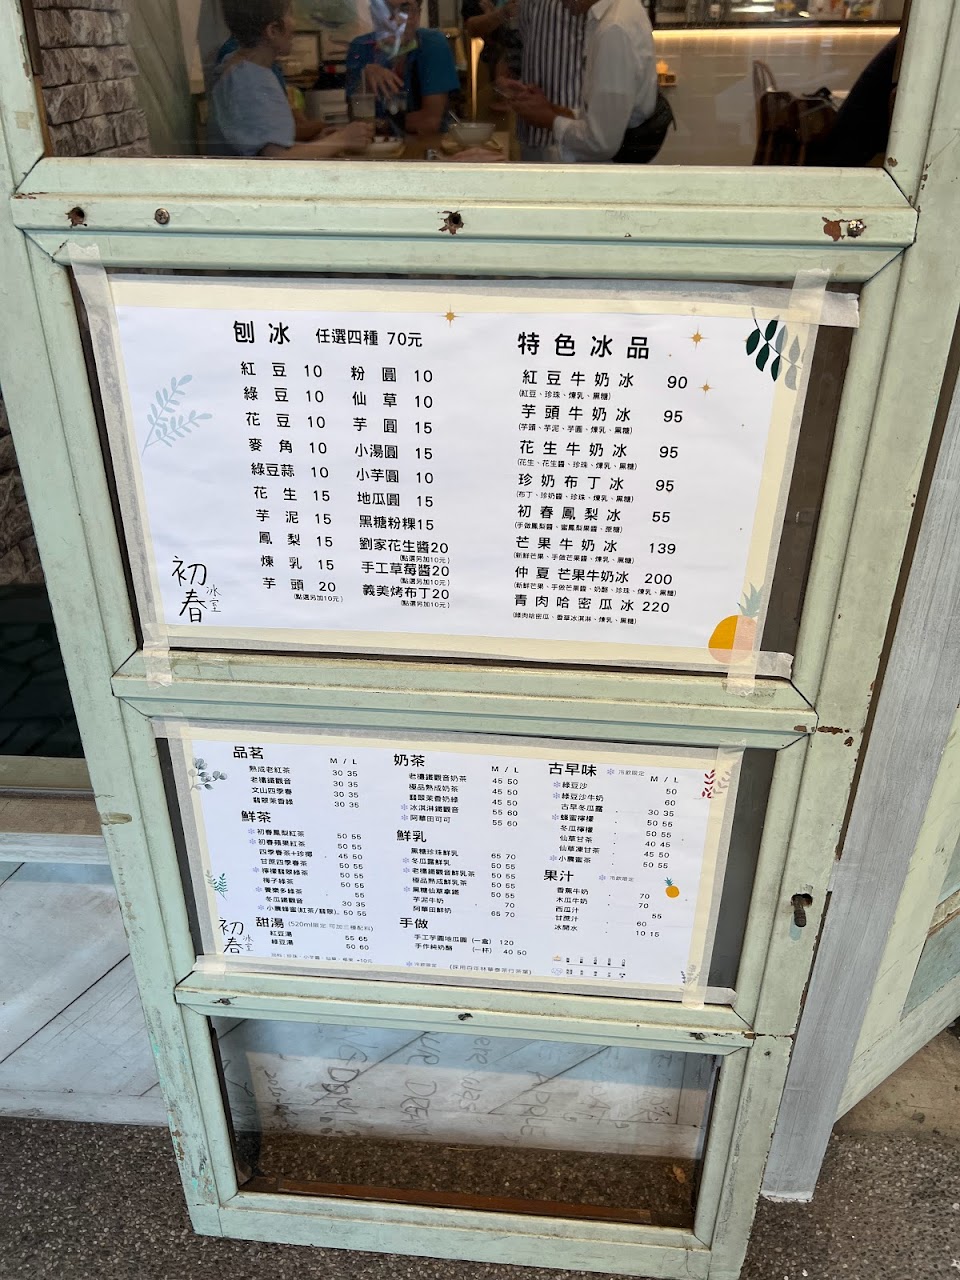 刨冰 任選四種 70元
紅豆 10
綠豆 10
花豆 10
麥角 10
綠豆蒜 10
花生 15
芋泥 15
鳳梨 15
煉乳 15
芋頭 20
(點選另加10元)
粉圓 10
仙草 10
芋圓 15
小湯圓 15
小芋圓 10
地瓜圓 15
黑糖粉粿15
劉家花生醬20
(點選另加10元)
手工草莓醬20
(點選另加10元)
義美烤布丁20
(點選另加10元)
特色冰品
紅豆牛奶冰 90
(紅豆、珍珠、煉乳、黑糖)
芋頭牛奶冰 95
(芋頭、芋泥、芋圓、煉乳、黑糖)
花生牛奶冰 95
(花生、花生醬、珍珠、煉乳、黑糖)
珍奶布丁冰 95
(布丁、珍奶醬、珍珠、煉乳、黑糖)
初春鳳梨冰 55
(手做鳳梨醬、蜜鳳梨果醬、蔗糖)
芒果牛奶冰 139
(新鮮芒果、手做芒果醬、煉乳、黑糖)
仲夏芒果牛奶冰 200
(新鮮芒果、手做芒果醬、奶酪、珍珠、煉乳、黑糖)
青肉哈密瓜冰 220
(綠肉哈密瓜、香草冰淇淋、煉乳、黑糖)
初春冰室
品茗 M / L
熟成老紅茶 30 35
老欉鐵觀音 30 35
文山四季春 30 35
翡翠茉香綠 30 35
鮮茶
初春鳳梨紅茶 50 55
初春蘋果紅茶 50 55
四季春茶+珍椰 45 50
甘蔗四季春茶 50 55
檸檬翡翠綠茶 50 55
梅子綠茶 50 55
養樂多綠茶 55
冬瓜鐵觀音 30 35
小農蜂蜜(紅茶/翡翠) 50 55
甜湯 (520ml限定 可加三種配料)
紅豆湯 55 65
綠豆湯 50 60
奶茶 M / L
老欉鐵觀音奶茶 45 50
極品熟成奶茶 45 50
翡翠茉香奶綠 45 50
冰淇淋鐵觀音 55 60
阿華田可可 55 60
鮮乳
黑糖珍珠鮮乳 65 70
冬瓜露鮮乳 50 55
老欉鐵觀音鮮乳茶 50 55
極品熟成鮮乳茶 50 55
黑糖仙草拿鐵 50 55
芋泥牛奶 70
阿華田鮮奶 65 70
手做
手工芋圓地瓜圓 (一盒) 120
手作純奶酪 (一杯) 40 50
冷飲限定 (採用百年林華泰茶行茶葉)
古早味 冷飲限定 M / L
綠豆沙 50
綠豆沙牛奶 60
古早冬瓜露 30 35
蜂蜜檸檬 50 55
冬瓜檸檬 50 55
仙草甘茶 40 45
仙草凍甘茶 45 50
小農蜜茶 50 55
果汁 冷飲限定
香蕉牛奶 70
木瓜牛奶 70
西瓜汁 55
甘蔗汁 60
冰開水 10 15
初春冰室